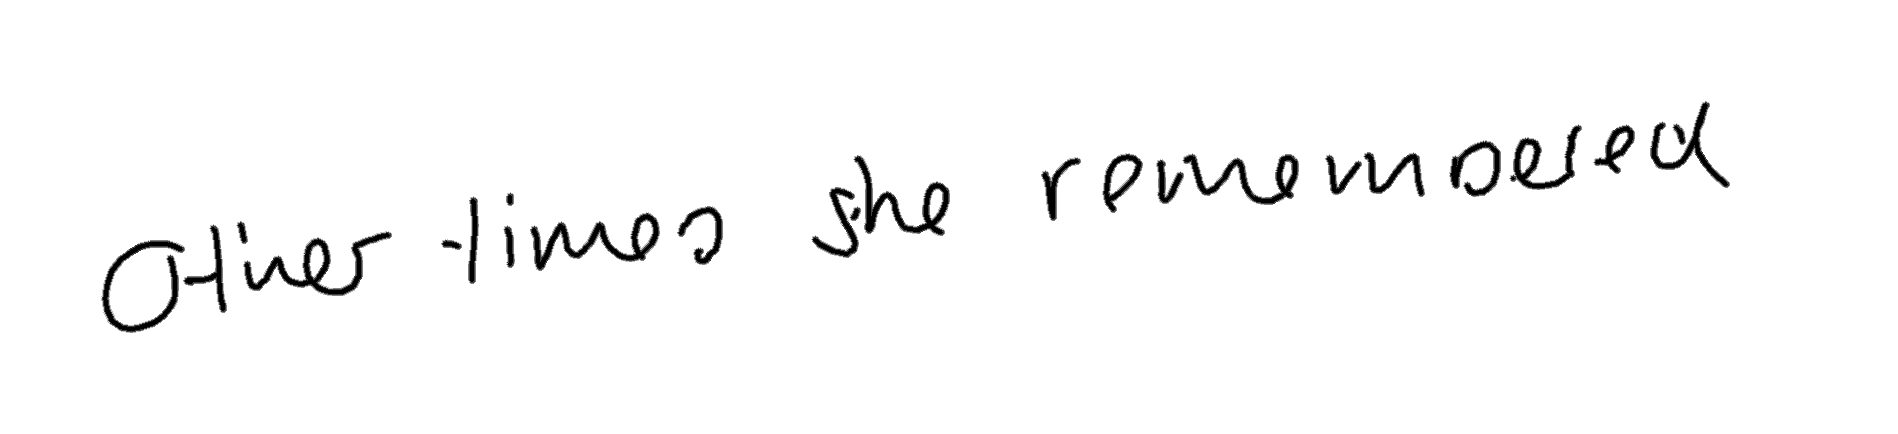 Other times she remembered